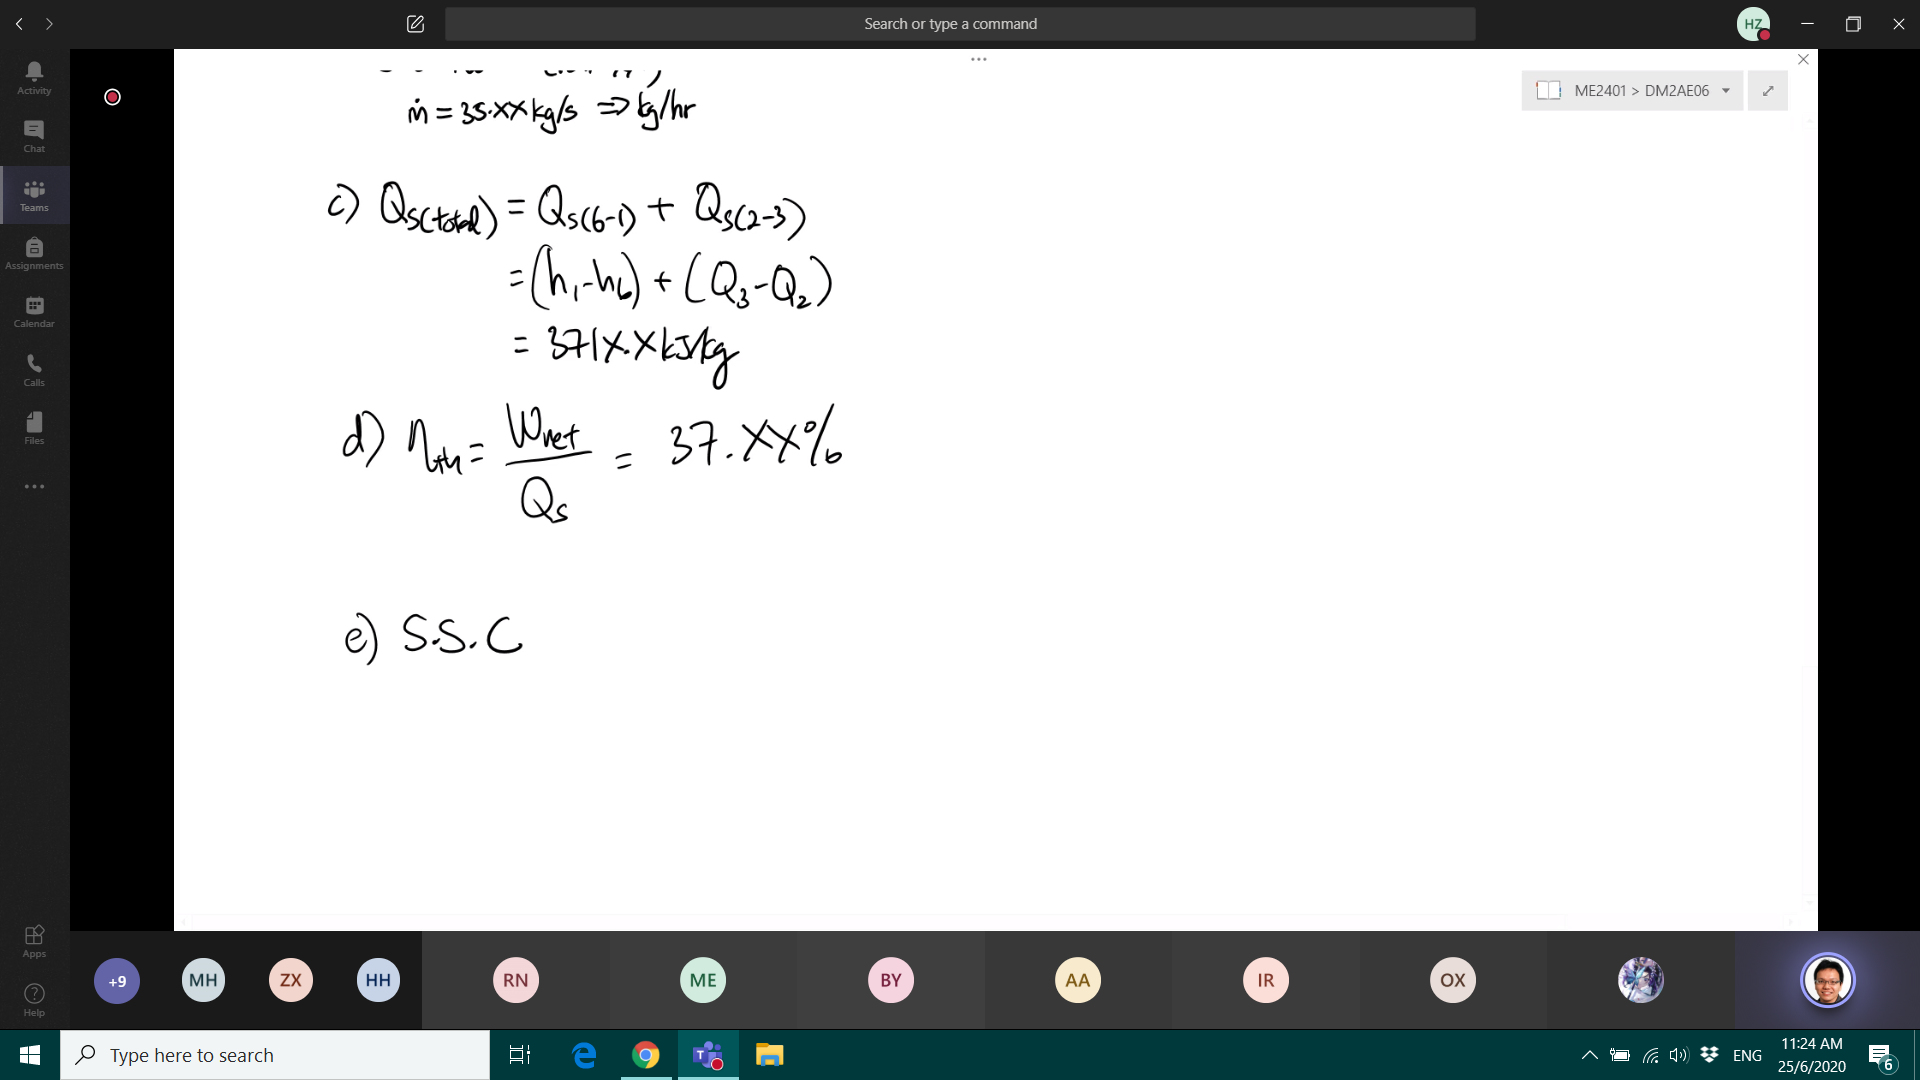 Search or type a command
HZ
Activity
Chat
Teams
Assignments
Calendar
Calls
Files
Apps
Help
ME2401 > DM2AE06
ṁ = 35.XX kg/s ⇒ kg/hr
c) Qs(total) = Qs(6-1) + Qs(2-3)
= (h₁-h₆) + (Q₃-Q₂)
= 371X.X kJ/kg
d) ηth = Wnet / Qs = 37.XX%
e) S.S.C
+9
MH
ZX
HH
RN
ME
BY
AA
IR
OX
Type here to search
ENG
11:24 AM
25/6/2020
6